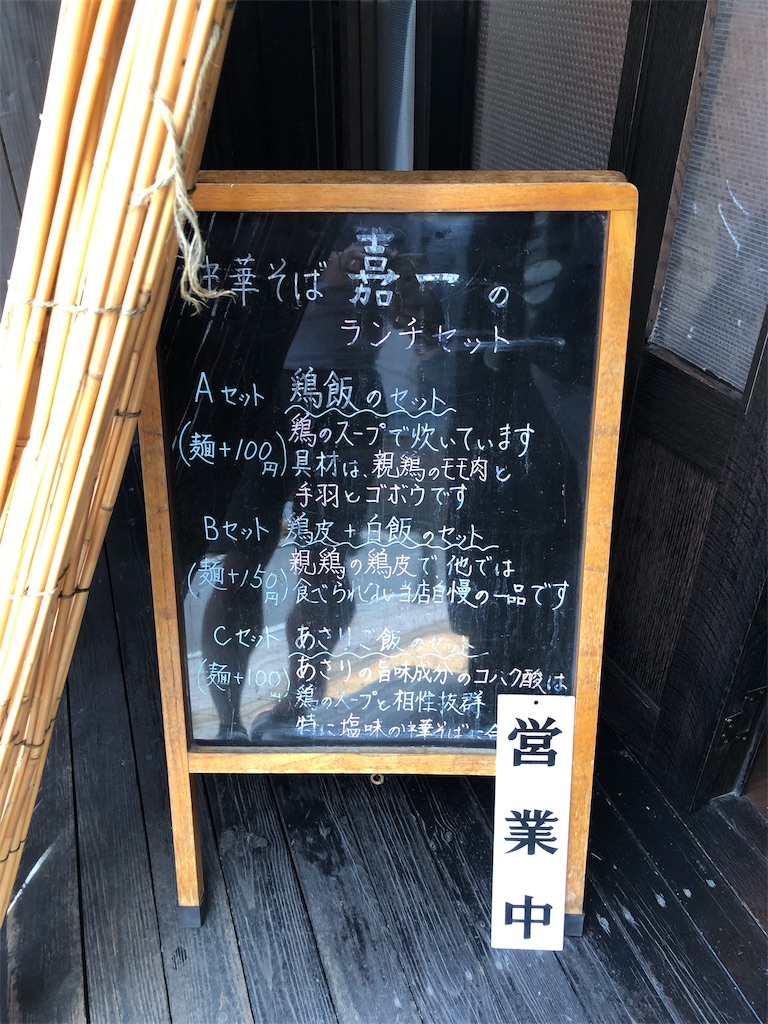 中華そば 嘉一 の
ランチセット
Aセット 鶏飯のセット
(麺+100円) 鶏のスープで炊いています
具材は、親鶏のモモ肉と
手羽とゴボウです
Bセット 鶏皮+白飯のセット
(麺+150円) 親鶏の鶏皮で他では
食べられない当店自慢の一品です
Cセット あさりご飯のセット
(麺+100円) あさりの旨味成分のコハク酸は
鶏のスープと相性抜群
特に塩味の中華そばに合
営業中